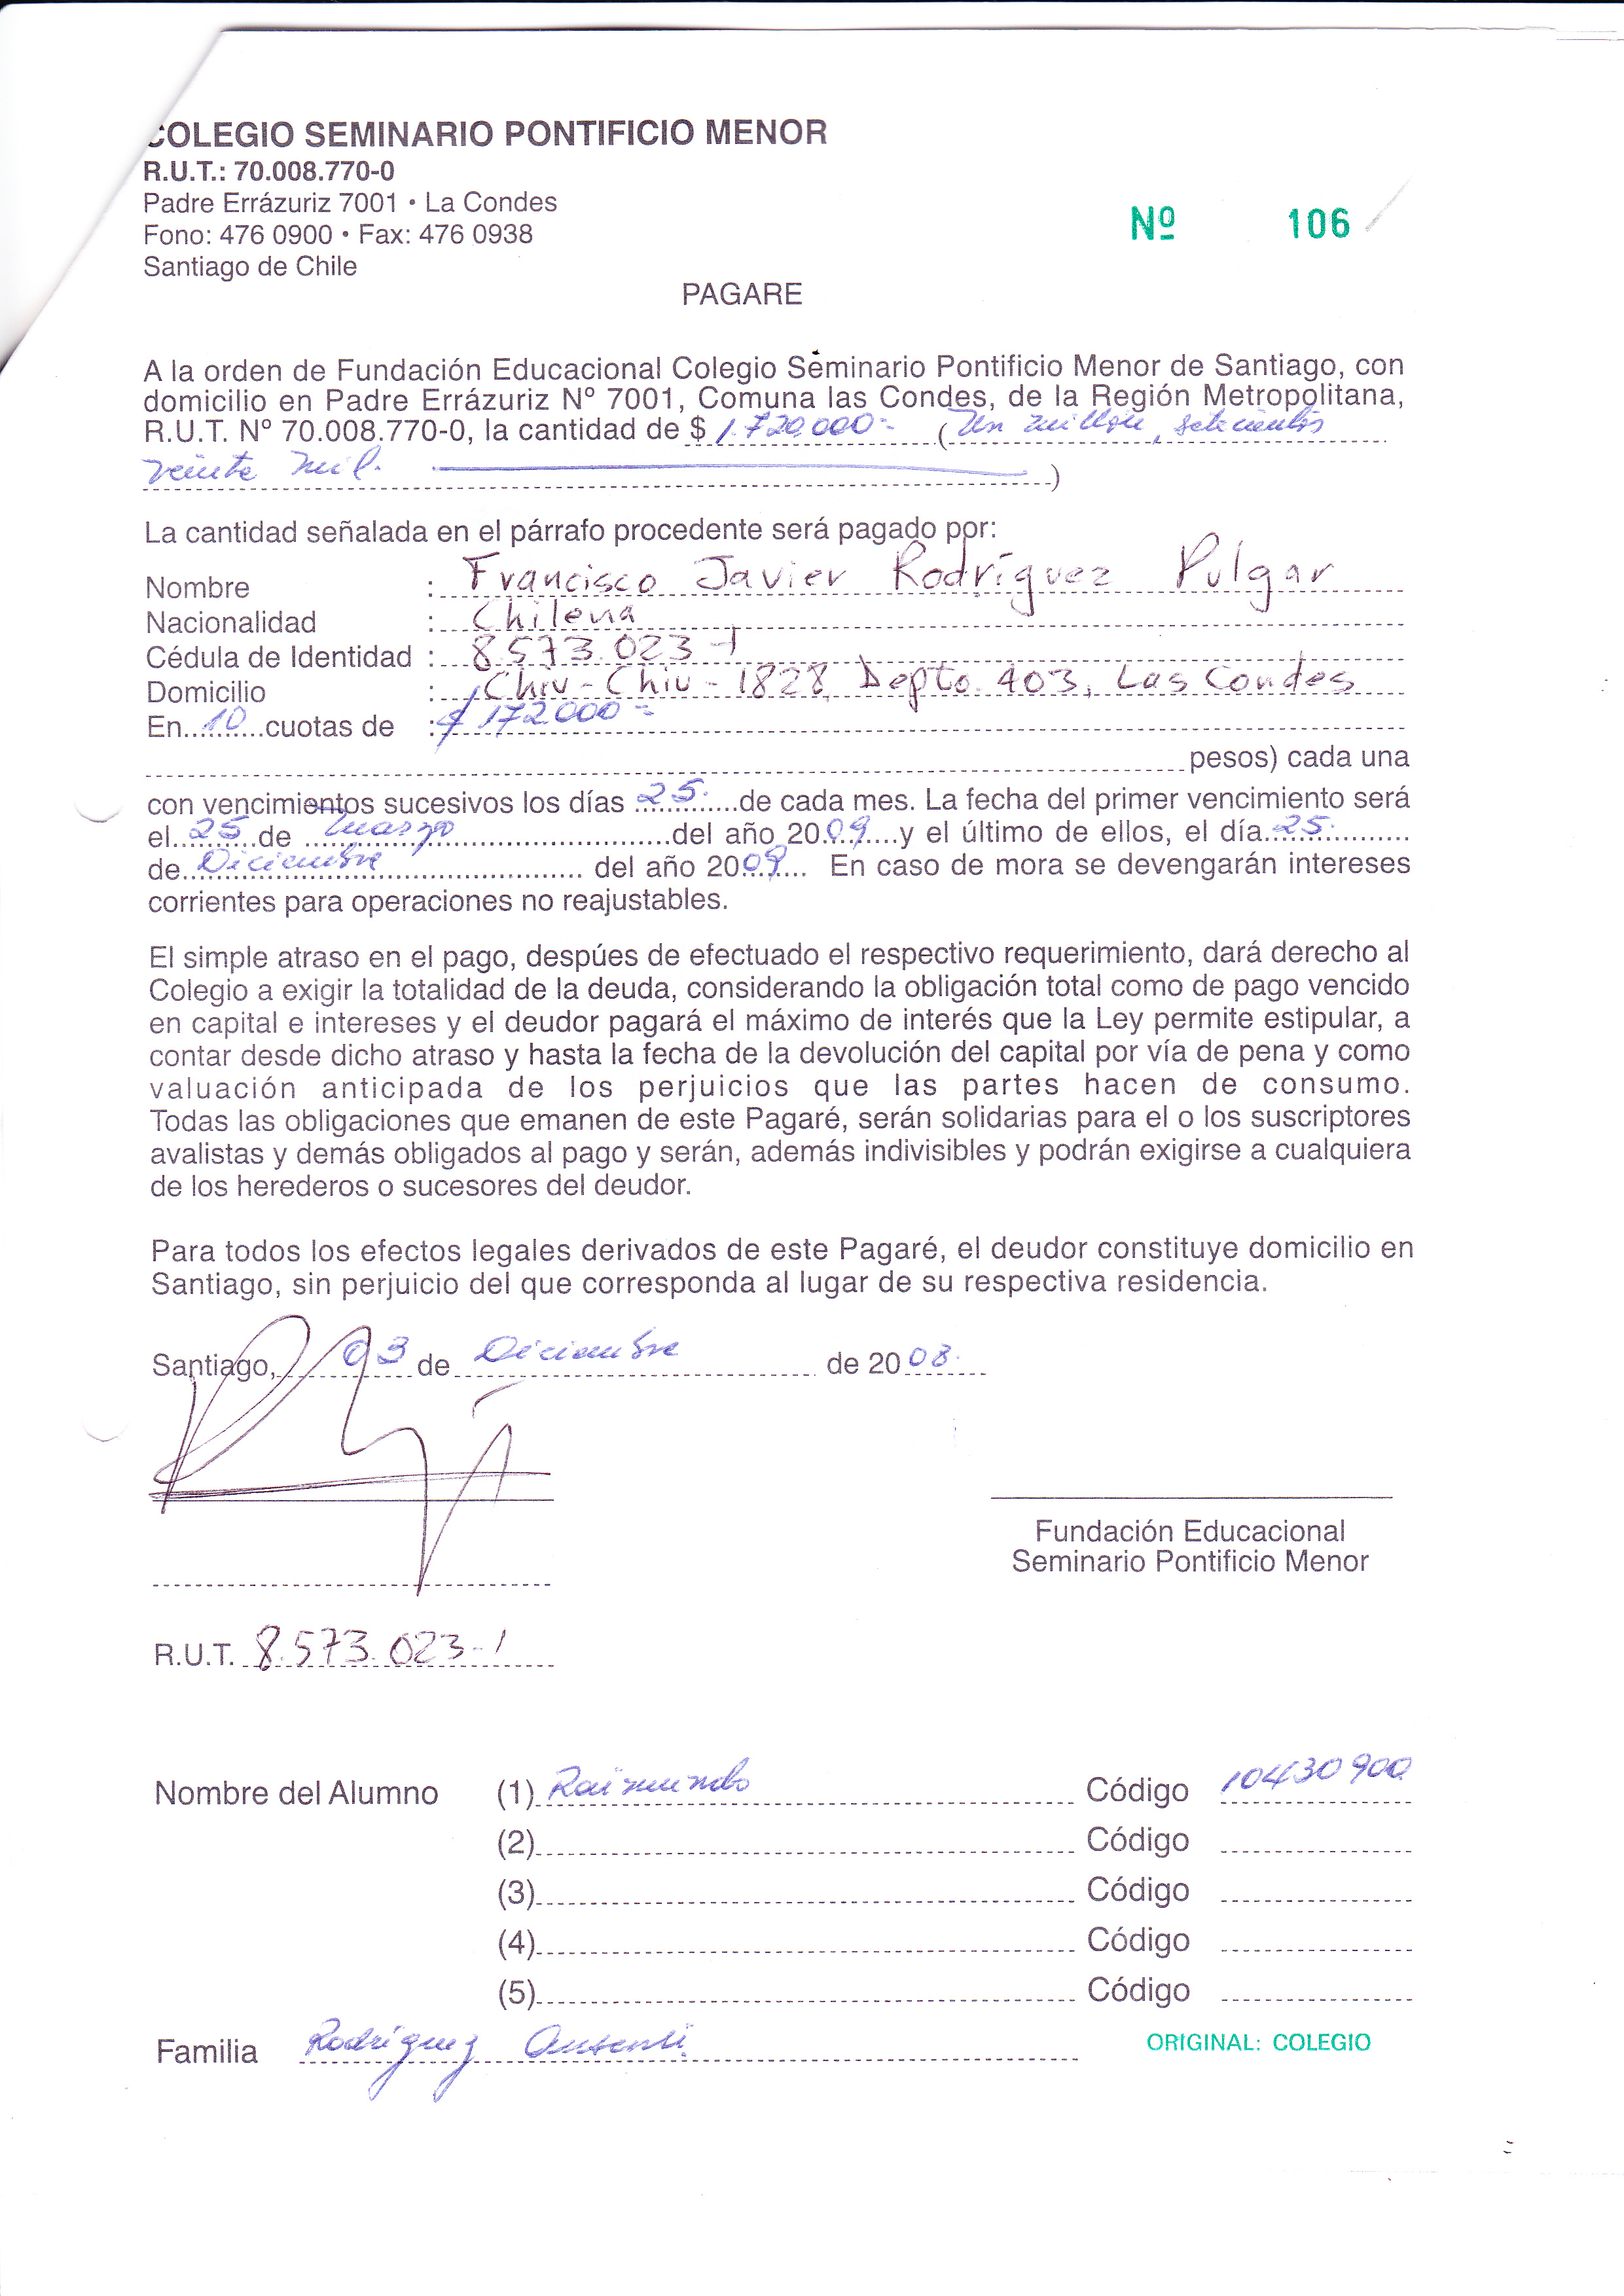 COLEGIO SEMINARIO PONTIFICIO MENOR
R.U.T.: 70.008.770-0
Padre Errázuriz 7001 • La Condes
Fono: 476 0900 • Fax: 476 0938
Santiago de Chile
Nº 106
PAGARE
A la orden de Fundación Educacional Colegio Seminario Pontificio Menor de Santiago, con
domicilio en Padre Errázuriz Nº 7001, Comuna las Condes, de la Región Metropolitana,
R.U.T. Nº 70.008.770-0, la cantidad de $ 1.720.000= (Un millón, setecientos
veinte mil. )
La cantidad señalada en el párrafo procedente será pagado por:
Nombre : Francisco Javier Rodríguez Pulgar
Nacionalidad : Chilena
Cédula de Identidad : 8.573.023-1
Domicilio : Chiu-Chiu-1828, Depto. 403, Las Condes
En 10 cuotas de : $ 172.000=
pesos) cada una
con vencimientos sucesivos los días 25. de cada mes. La fecha del primer vencimiento será
el 25 de marzo del año 2009 y el último de ellos, el día 25
de Diciembre del año 2009 En caso de mora se devengarán intereses
corrientes para operaciones no reajustables.
El simple atraso en el pago, despúes de efectuado el respectivo requerimiento, dará derecho al
Colegio a exigir la totalidad de la deuda, considerando la obligación total como de pago vencido
en capital e intereses y el deudor pagará el máximo de interés que la Ley permite estipular, a
contar desde dicho atraso y hasta la fecha de la devolución del capital por vía de pena y como
valuación anticipada de los perjuicios que las partes hacen de consumo.
Todas las obligaciones que emanen de este Pagaré, serán solidarias para el o los suscriptores
avalistas y demás obligados al pago y serán, además indivisibles y podrán exigirse a cualquiera
de los herederos o sucesores del deudor.
Para todos los efectos legales derivados de este Pagaré, el deudor constituye domicilio en
Santiago, sin perjuicio del que corresponda al lugar de su respectiva residencia.
Santiago, 03 de Diciembre de 2008.
Fundación Educacional
Seminario Pontificio Menor
R.U.T. 8.573.023-1
Nombre del Alumno (1) Raimundo Código 10430900
(2) Código
(3) Código
(4) Código
(5) Código
Familia Rodríguez
ORIGINAL: COLEGIO